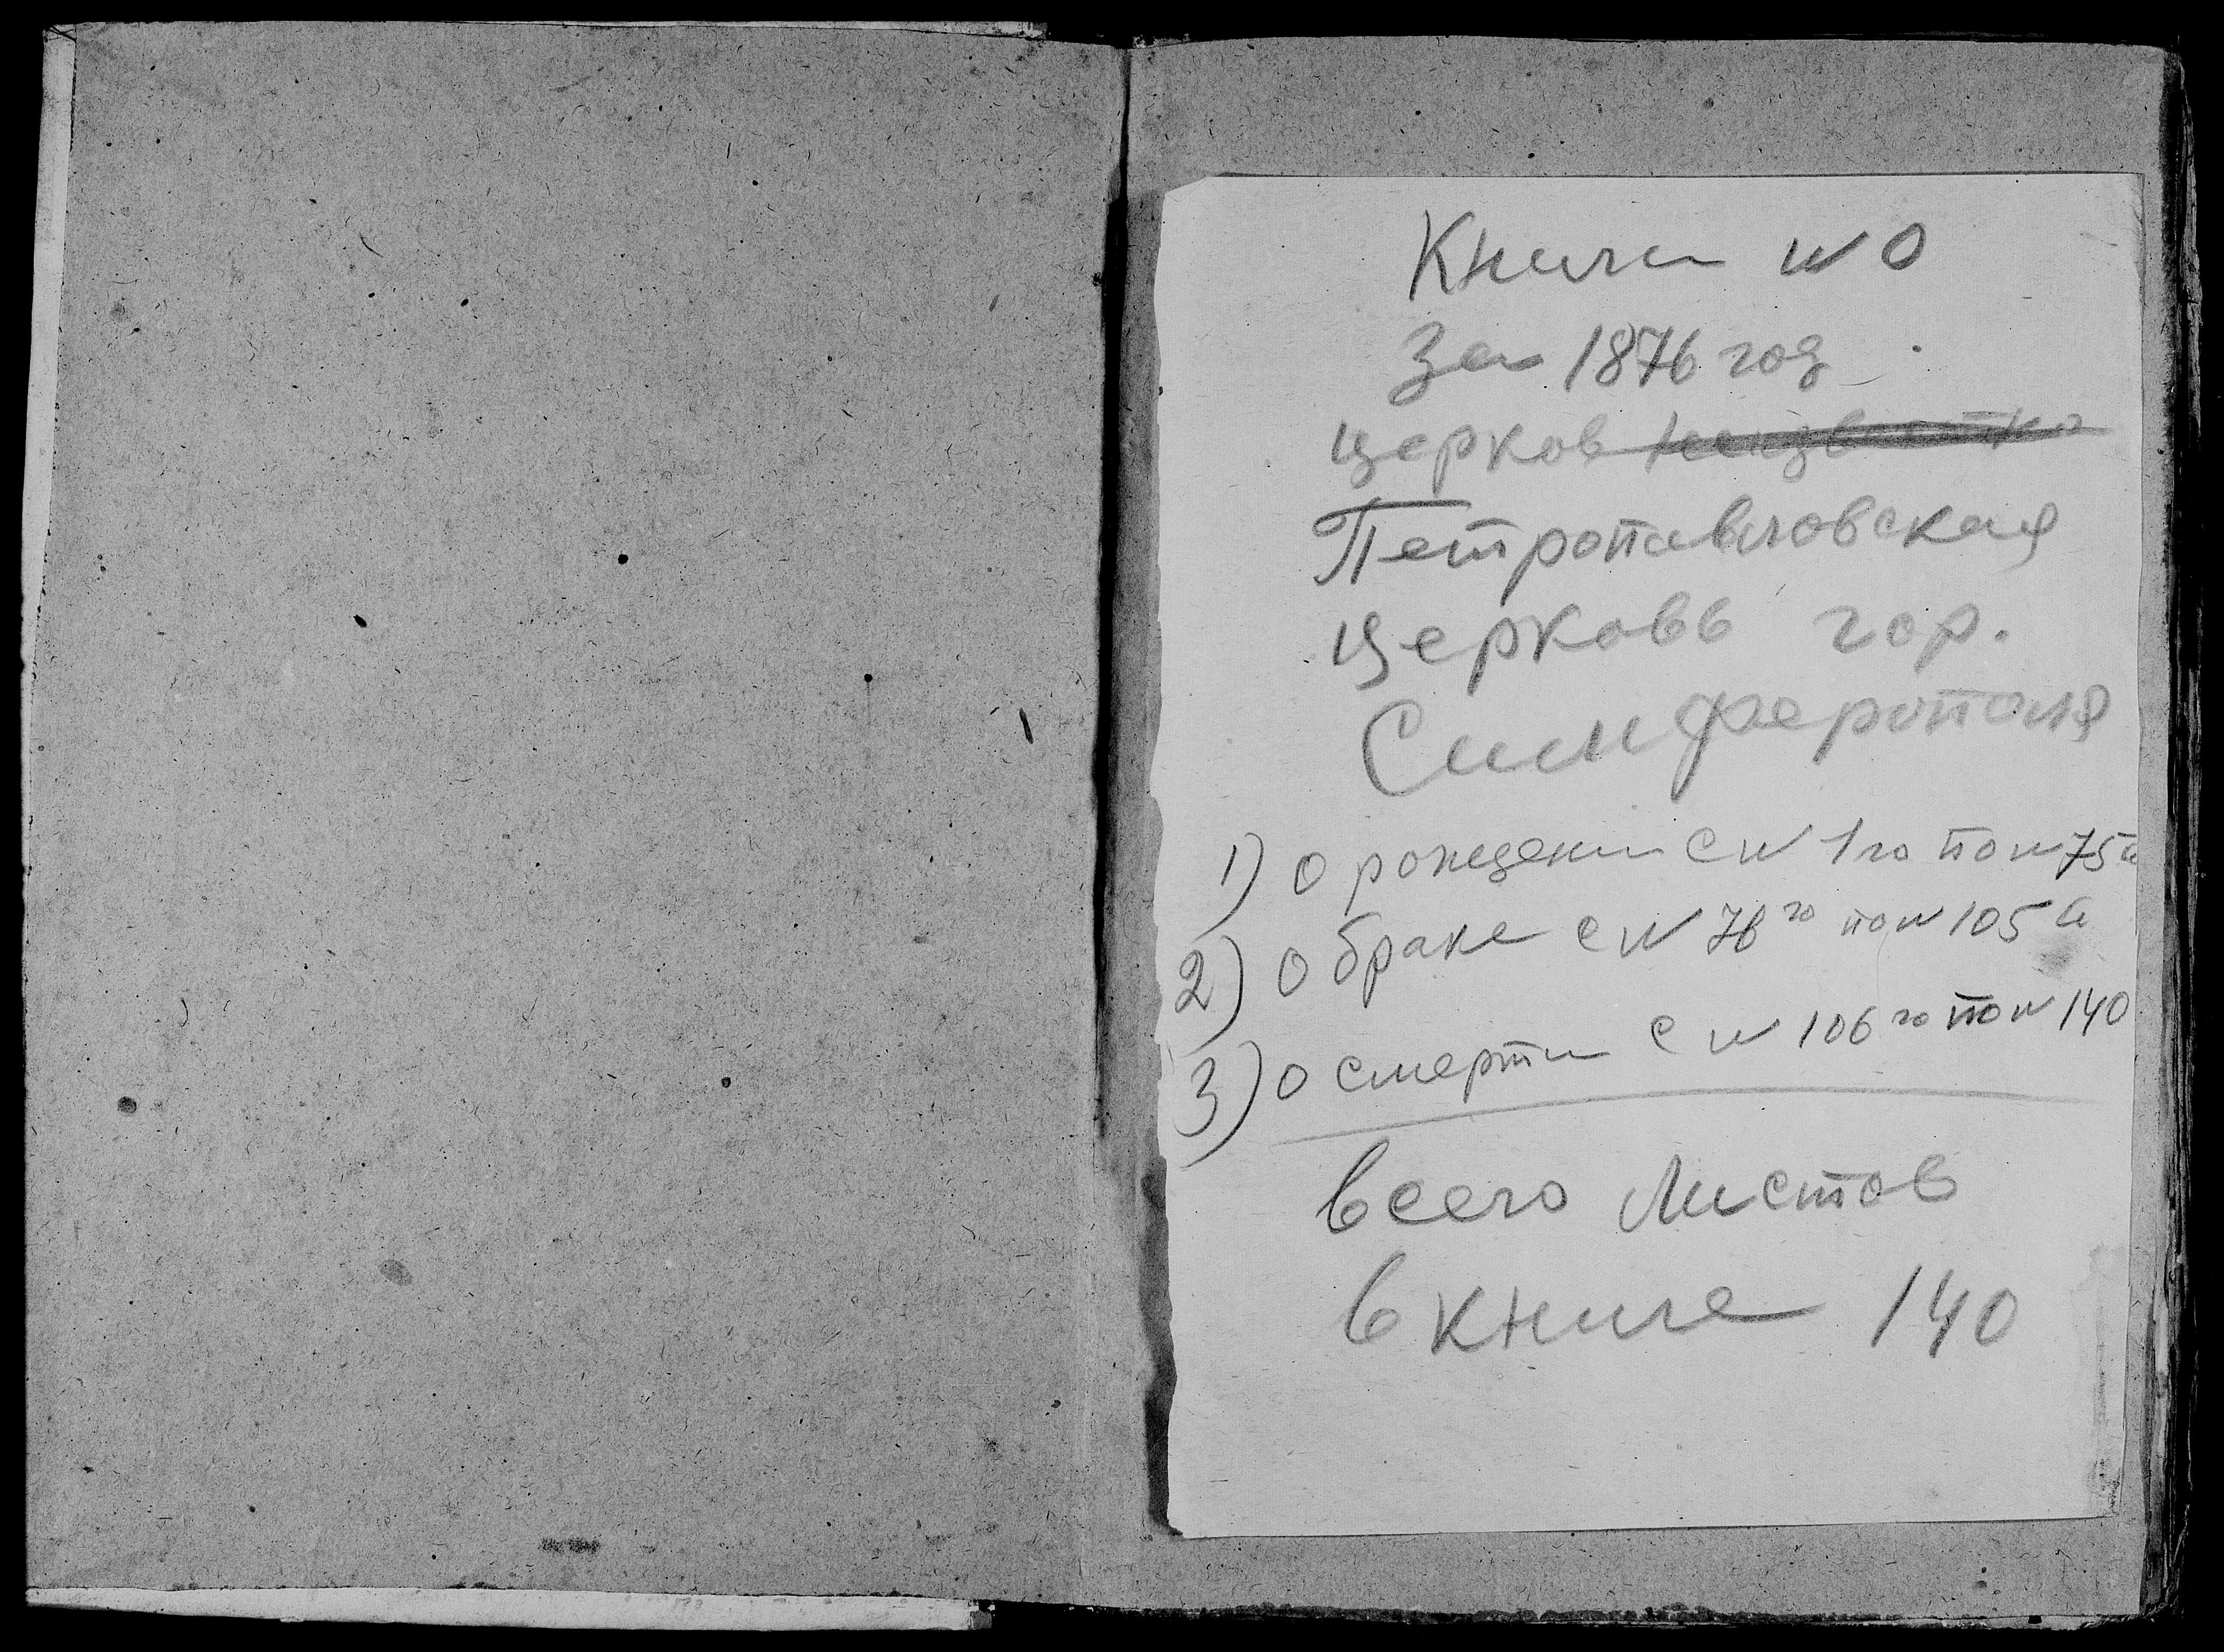 Книга № 0
За 1876 год
церков неизвестна
Петропавловская
церковь гор.
Симферополя
1) о рождении с № 1го по № 75й
2) о браке с № 76го по № 105й
3) о смерти с № 106го по № 140
всего листов
в книге 140